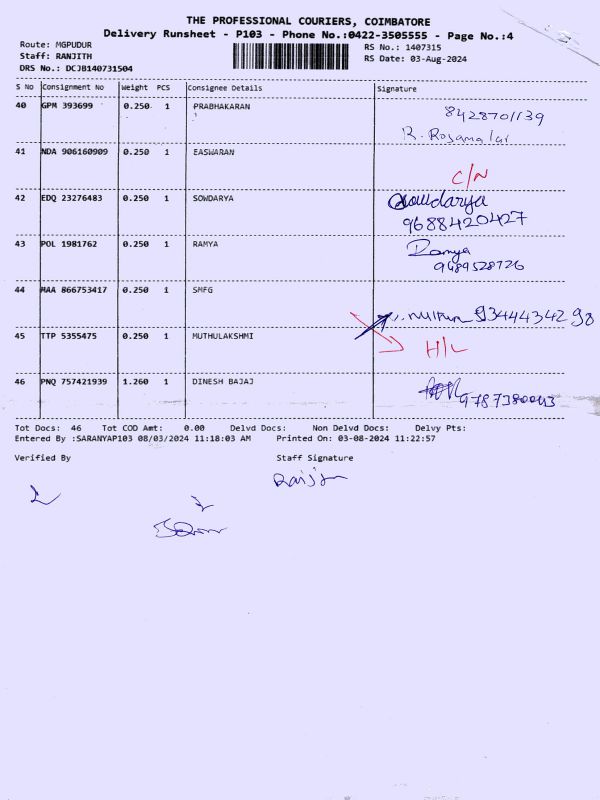 THE PROFESSIONAL COURIERS, COIMBATORE
Delivery Runsheet - P103 - Phone No.:0422-3505555 - Page No.:4
Route: MGPUDUR
RS No.: 1407315
Staff: RANJITH
RS Date: 03-Aug-2024
DRS No.: DCJB140731504
S No Consignment No Weight PCS Consignee Details Signature
40 GPM 393699 0.250 1 PRABHAKARAN
8428701139
R. Rosamalar
41 NDA 906160909 0.250 1 EASWARAN
C/N
42 EDQ 23276483 0.250 1 SOWDARYA Sowdarya
9688420427
43 POL 1981762 0.250 1 RAMYA Ramya
9489528726
44 MAA 866753417 0.250 1 SMFG
9344434298
45 TTP 5355475 0.250 1 MUTHULAKSHMI H/L
46 PNQ 757421939 1.260 1 DINESH BAJAJ
9787380043
Tot Docs: 46 Tot COD Amt: 0.00 Delvd Docs: Non Delvd Docs: Delvy Pts:
Entered By :SARANYAP103 08/03/2024 11:18:03 AM Printed On: 03-08-2024 11:22:57
Verified By Staff Signature